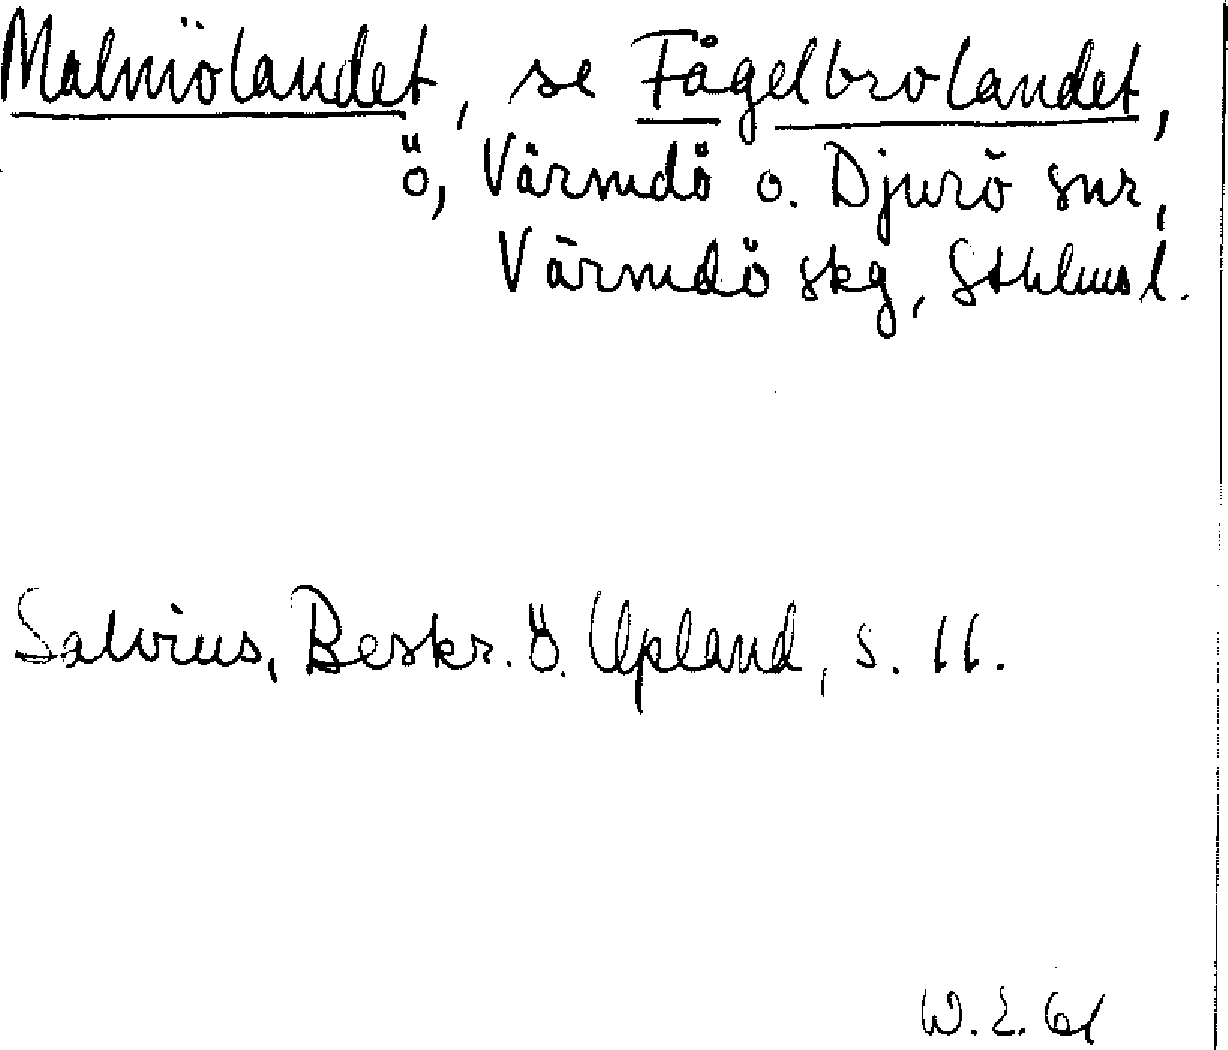 Malmölandet, se Fågelbrolandet,
ö, Värmdö o. Djurö snr,
Värmdö skg, Sthlms l.
Salvius, Beskr. ö. Upland, s. 11.
W. E. 61